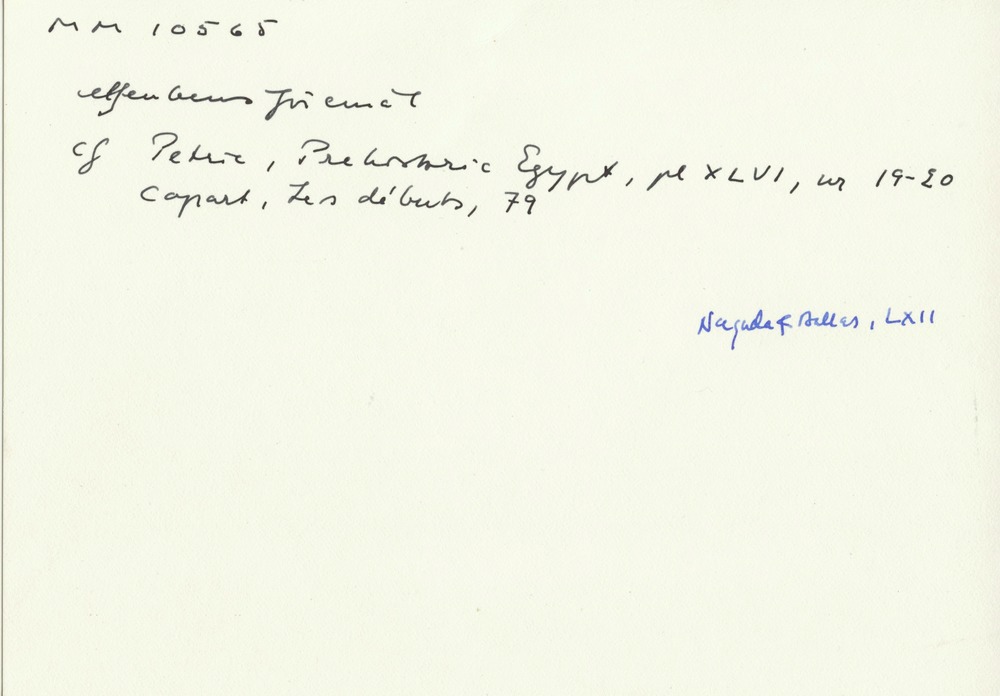 MM 10565
elfenbensföremål
cf Petrie, Prehistoric Egypt, pl XLVI, nr 19-20
Capart, Les débuts, 79
Naqada & Ballas, LXII